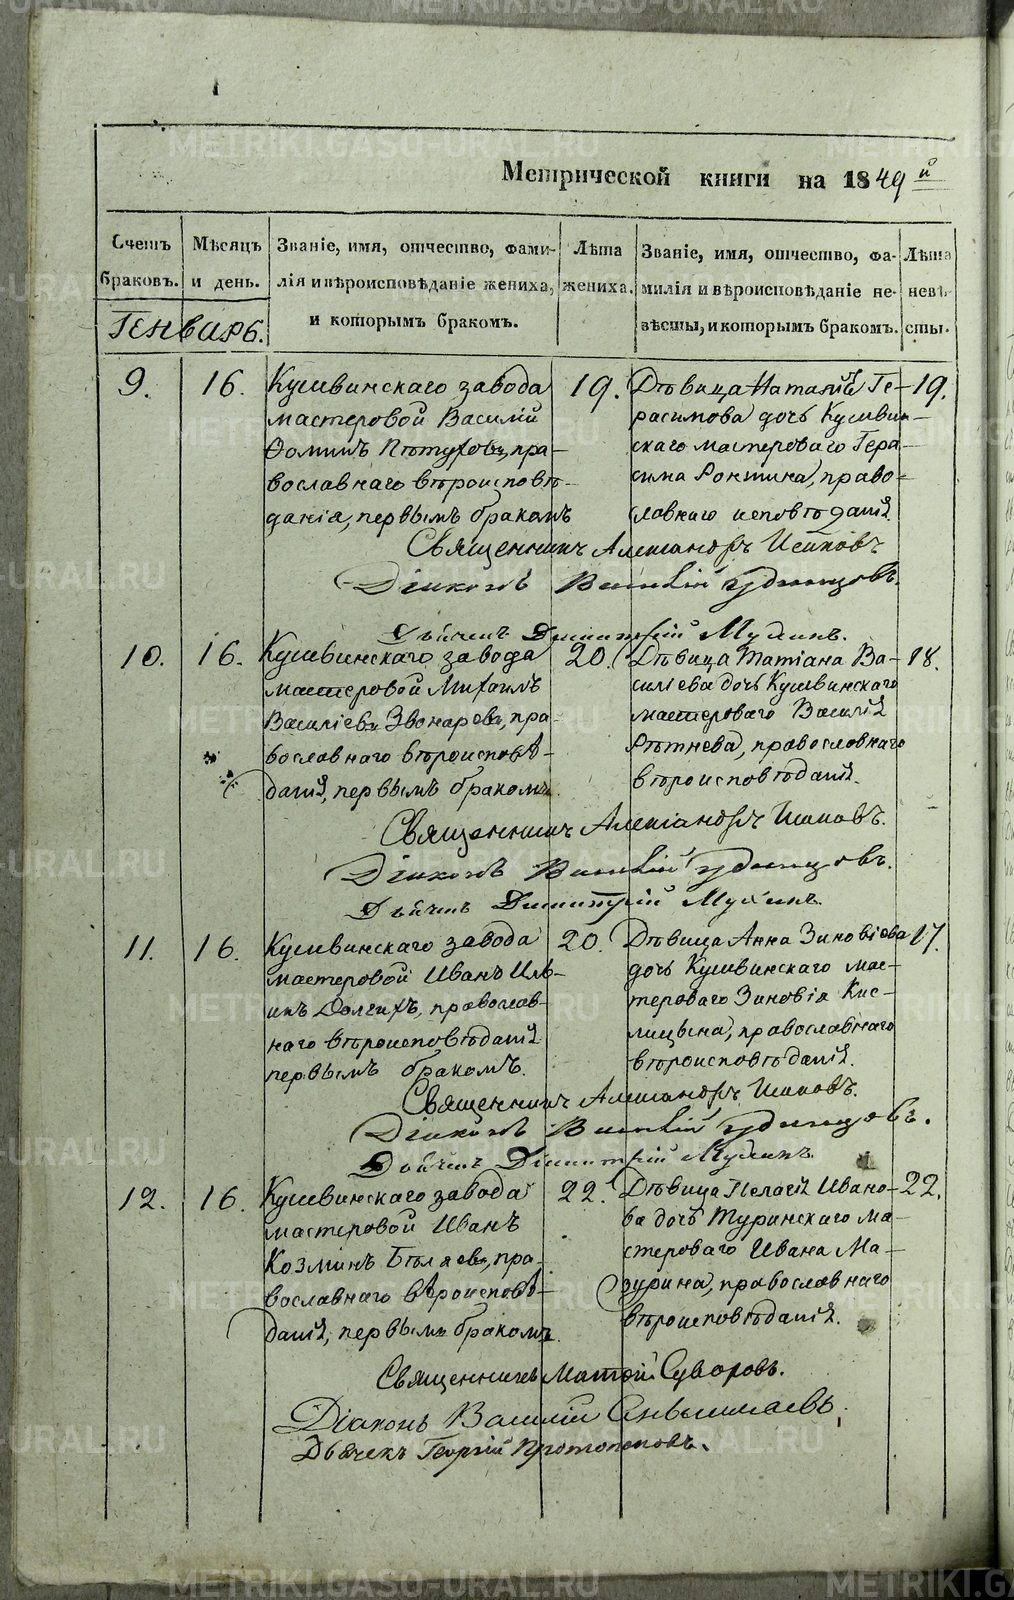 Метрической книги на 1849й
Счетъ браковъ.
Мѣсяцъ и день.
Званіе, имя, отчество, фами-
лія и вѣроисповѣданіе жениха,
и которымъ бракомъ.
Лѣта жениха.
Званіе, имя, отчество, фа-
милія и вѣроисповѣданіе не-
вѣсты, и которымъ бракомъ.
Лѣта невѣ-
сты.
Генварь.
9. 16.
Кушвинскаго завода
мастеровой Василій
Ѳоминъ Пѣтуховъ, пра-
вославнаго вѣроисповѣ-
данія, первымъ бракомъ
19.
Дѣвица Наталія Ге-
расимова дочь Кушвин-
скаго мастероваго Гера-
сима, право-
славнаго исповѣданія.
19.
Священникъ Александръ
Діаконъ Василій Удинцовъ.
Дьячекъ Димитрій
10. 16.
Кушвинскаго завода
мастеровой Михаилъ
Василіевъ Звонаревъ, пра-
вославнаго вѣроисповѣ-
данія, первымъ бракомъ.
20.
Дѣвица Татіана Ва-
силіева дочь Кушвинскаго
мастероваго Василія
православнаго
вѣроисповѣданія.
18.
Священникъ Александръ
Діаконъ Василій Удинцовъ.
Дьячекъ Димитрій
11. 16.
Кушвинскаго завода
мастеровой Иванъ Иль-
инъ Долгихъ, православ-
наго вѣроисповѣданія
первымъ бракомъ.
20.
Дѣвица Анна Зиновіева
дочь Кушвинскаго мас-
тероваго Зиновія Кис-
лицына, православнаго
вѣроисповѣданія.
17.
Священникъ Александръ
Діаконъ Василій Удинцовъ.
Дьячекъ Димитрій
12. 16.
Кушвинскаго завода
мастеровой Иванъ
Козминъ Бѣляевъ, пра-
вославнаго вѣроисповѣ-
данія, первымъ бракомъ.
22.
Дѣвица Пелагія Ивано-
ва дочь Туринскаго ма-
стероваго Ивана Ма-
зурина, православнаго
вѣроисповѣданія.
22.
Священникъ Матѳій Суворовъ.
Діаконъ Василій
Дьячекъ Георгій Протопоповъ.
METRIKI.GASO-URAL.RU